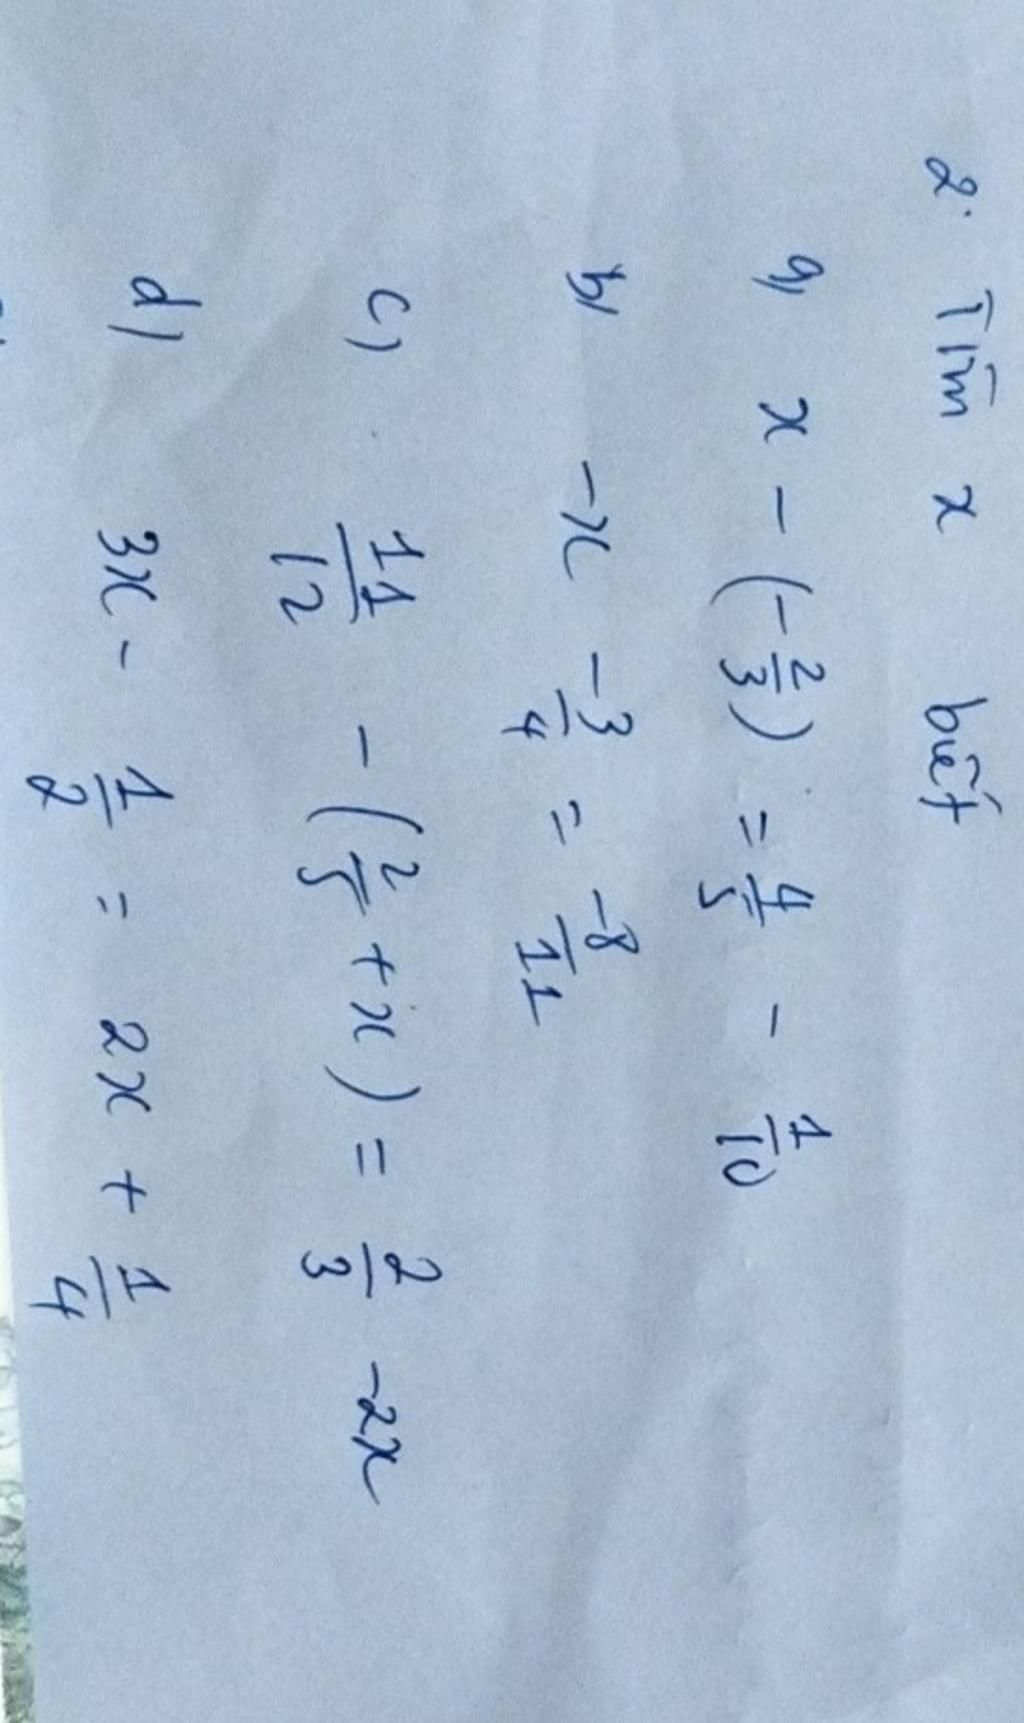 2. Tìm x biết
a) x - (-2/3) = 4/5 - 1/10
b) -x -3/4 = -8/11
c) 11/12 - (2/5 + x) = 2/3 -2x
d) 3x - 1/2 = 2x + 1/4